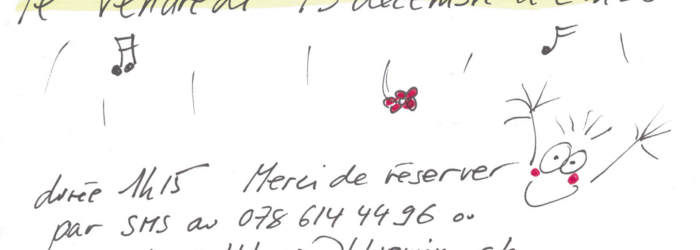 le vendredi 13 décembre à
durée 1h15 Merci de réserver
par SMS au 078 614 44 96 ou